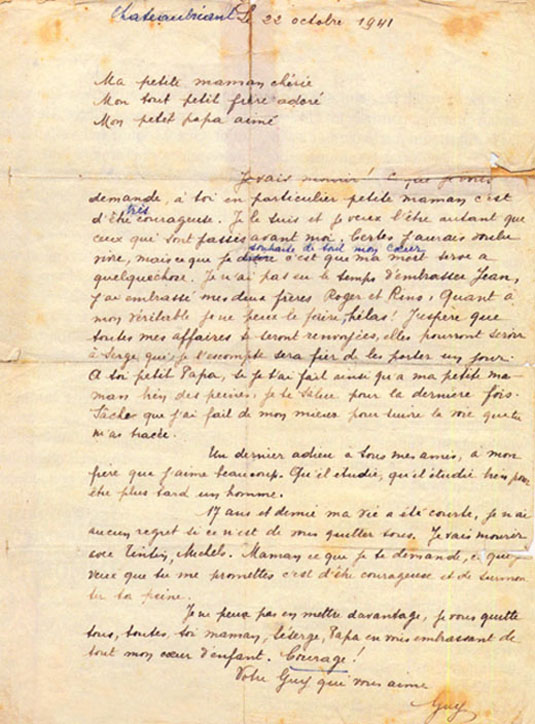 Chateaubriant Le 22 octobre 1941
Ma petite maman chérie
Mon tout petit frère adoré
Mon petit papa aimé
Je vais mourir! Ce que je vous
demande, à toi en particulier petite maman c'est
d'être très courageuse. Je le suis et je veux l'être autant que
ceux qui sont passés avant moi. Certes j'aurais voulu
vivre, mais ce que je souhaite de tout mon cœur c'est que ma mort serve a
quelquechose. Je n'ai pas eu le temps d'embrasser Jean,
j'ai embrassé mes deux frères Roger et Rino, Quant à
mon véritable je ne peux le faire, hélas! J'espère que
toutes mes affaires te seront renvoyées, elles pourront servir
à Serge qui je l'escompte sera fier de les porter un jour.
A toi petit Papa, si je t'ai fait ainsi qu'a ma petite ma-
man bien des peines, je te salue pour la dernière fois.
Sache que j'ai fait de mon mieux pour suivre la voie que tu
m'as tracée.
Un dernier adieu à tous mes amis, à mon
frère que j'aime beaucoup. Qu'il étudie, qu'il étudie bien pour
être plus tard un homme.
17 ans et demie ma vie a été courte, je n'ai
aucun regret si ce n'est de vous quitter tous. Je vais mourir
avec Tintin, Michels. Maman ce que je te demande, ce que je
veux que tu me promettes c'est d'être courageuse et de surmon
ter ta peine.
Je ne peux pas en mettre davantage, je vous quitte
tous, toutes, toi maman, Séserge, Papa en vous embrassant de
tout mon cœur d'enfant. Courage!
Votre Guy qui vous aime
Guy